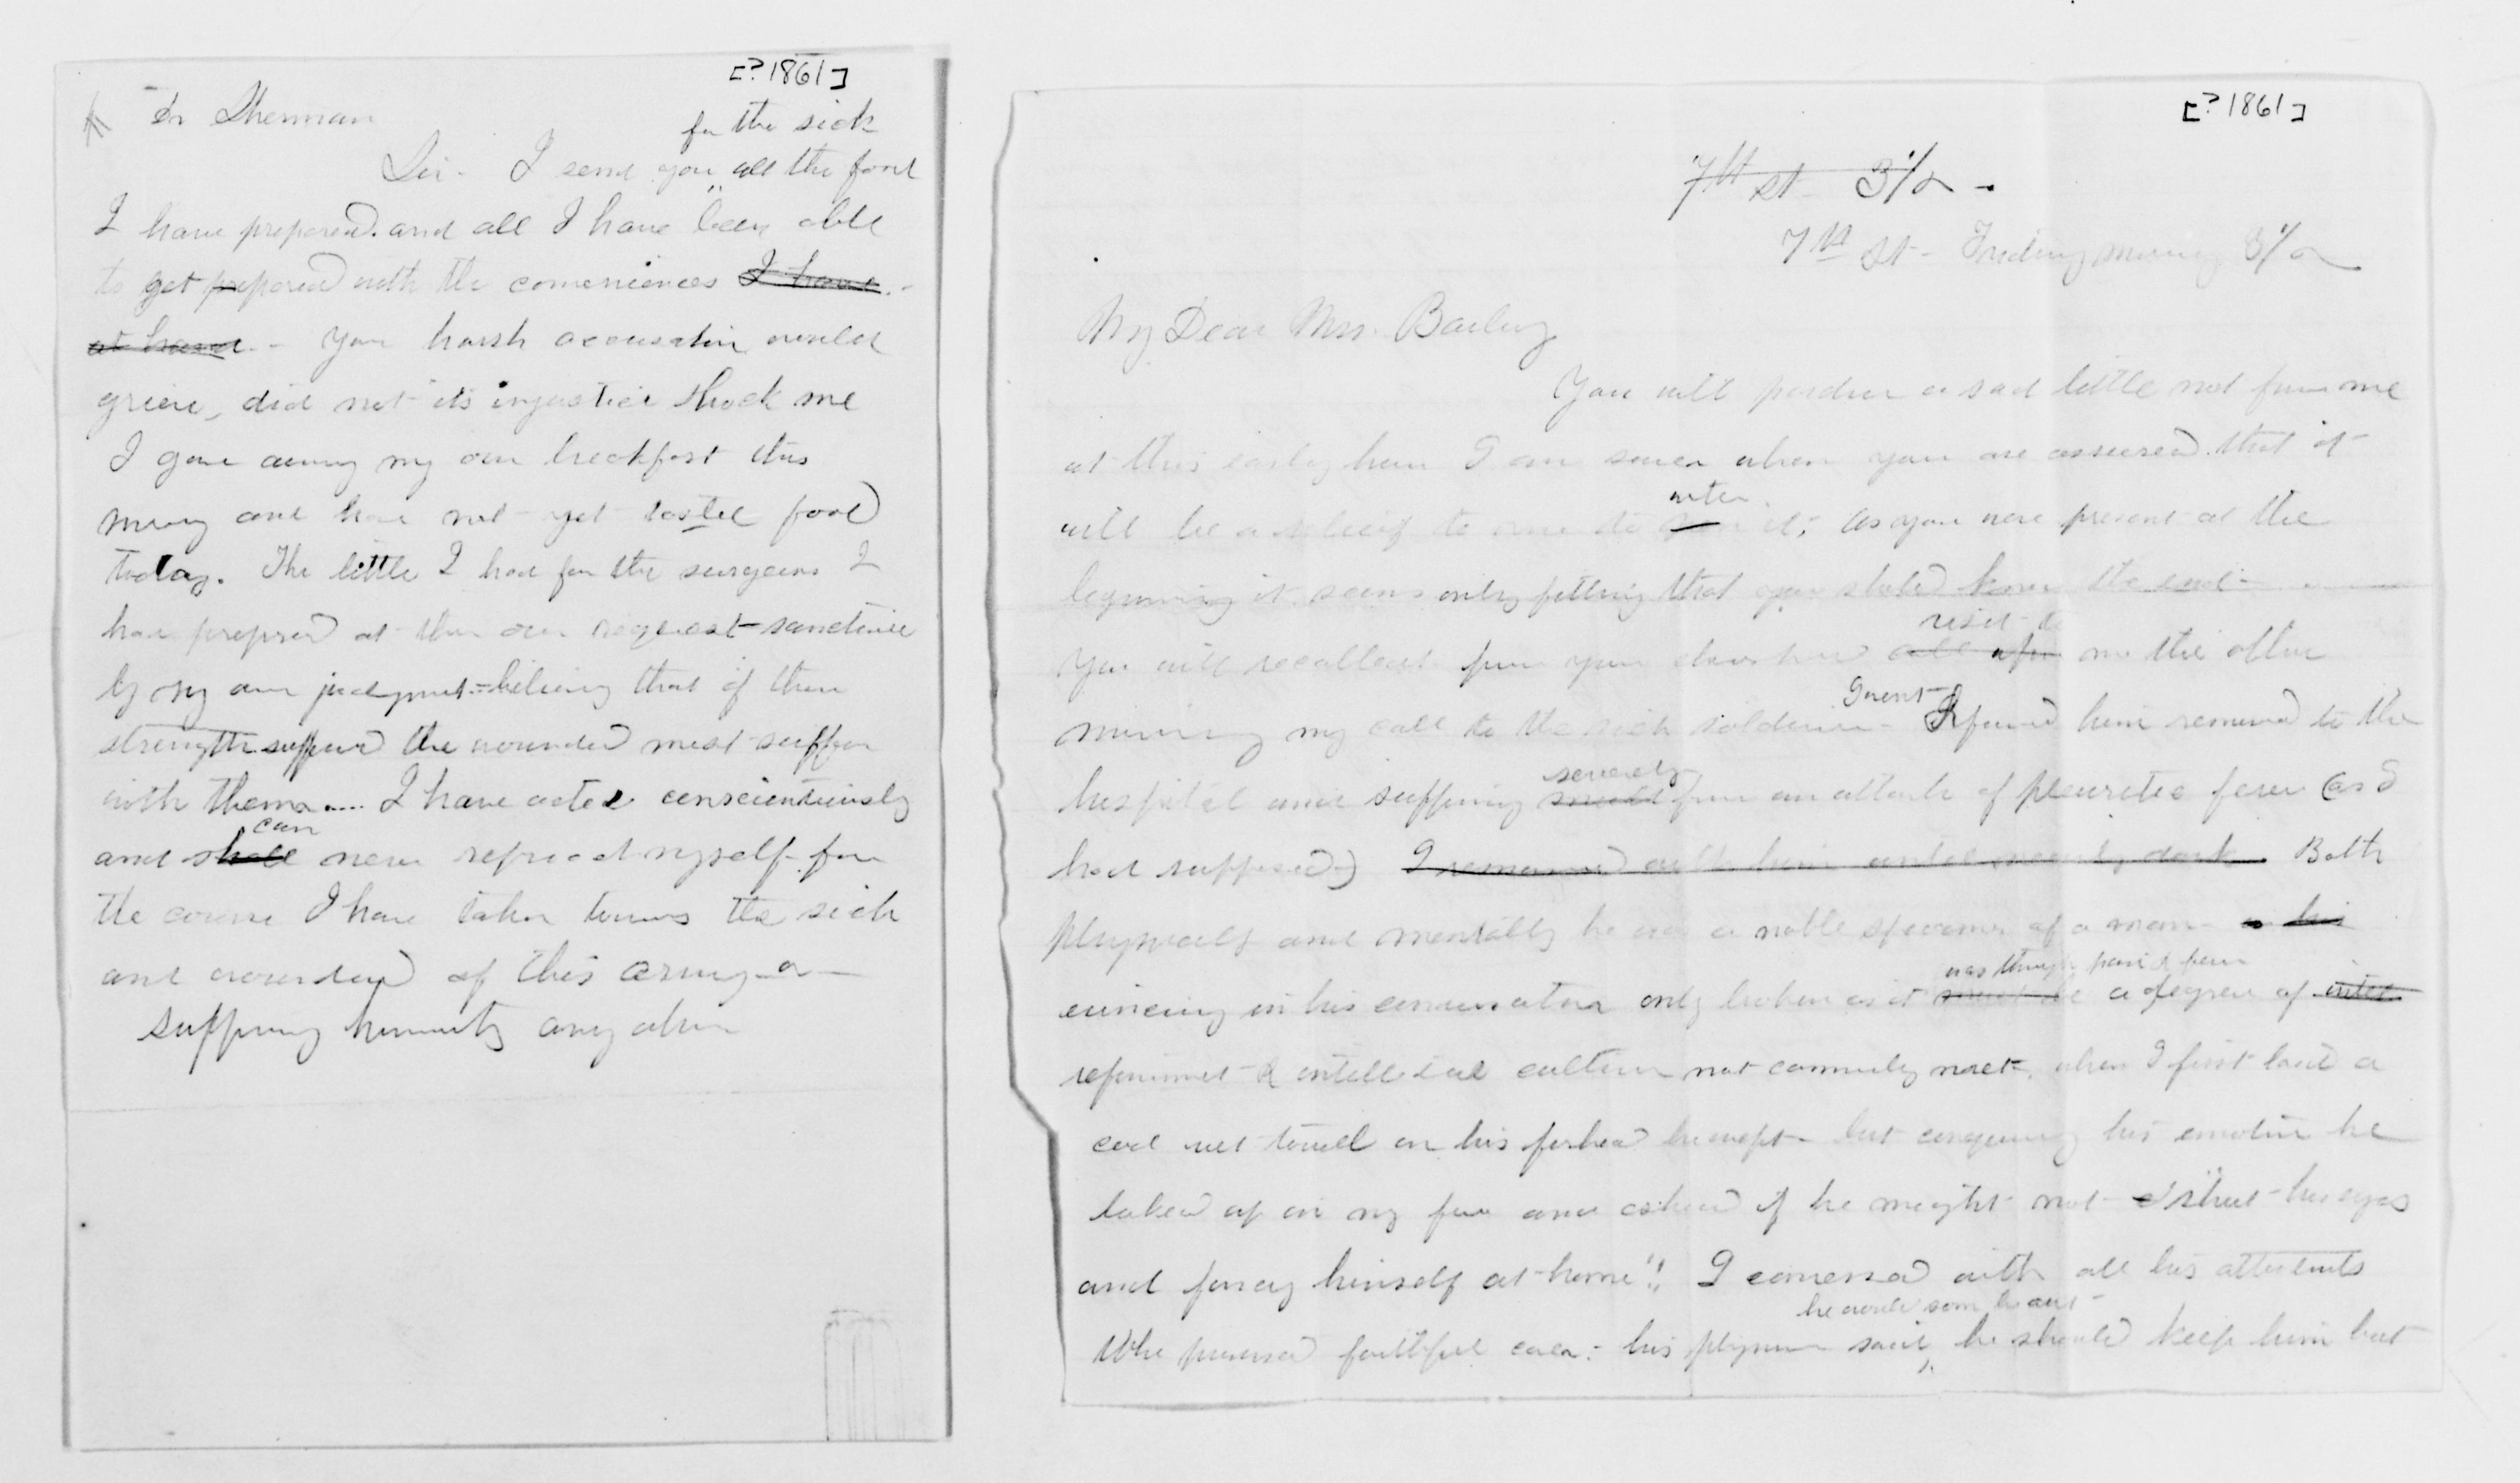 [? 1861]
Dr Sherman
for the sick
Sir - I send you all the food
I have prepared. and all I have been able
to get prepared with the conveniences I have. -
at hand. - Your harsh accusation would
grieve, did not its injustice shock me
I gave away my own breakfast this
morning and have not yet tasted food
today. The little I had for the surgeons I
have prepared at their own request - sanctioned
by my own judgment - believing that if their
strength suffered the wounded must suffer
with them.... I have acted conscientiously
can
and shall never reproach myself for
the course I have taken towards the sick
and wounded of this army - or
suffering humanity any where
[? 1861]
7th st - 3½ -
7th St - Friday morning 3½
My Dear Mrs. Bailey
You will pardon a sad little note from me
at this early hour I am sure when you are assured that it
write
will be a relief to me to it; As you were present at the
beginning it seems only fitting that you should know the end -
visit to
You will recollect from your call upon me the other
morning my call to the sick soldier -
I went
I found him removed to the
severely
hospital and suffering from an attack of pleuretic fever (as I
had supposed) I remained with him until nearly dark. Both
physically and mentally he was a noble specimen of a man - in his
was through pain & fever
evincing in his conversation only broken as it must be a degree of intel
refinement & intellectual culture not commonly met. when I first laid a
cool wet towel on his forhead he wept - but conquering his emotion he
looked up in my face and asked if he might not "shut his eyes
and fancy himself at home"!! I conversed with all his attendants
he would soon be out -
Who promised faithful care; - his physician said, he should keep him but